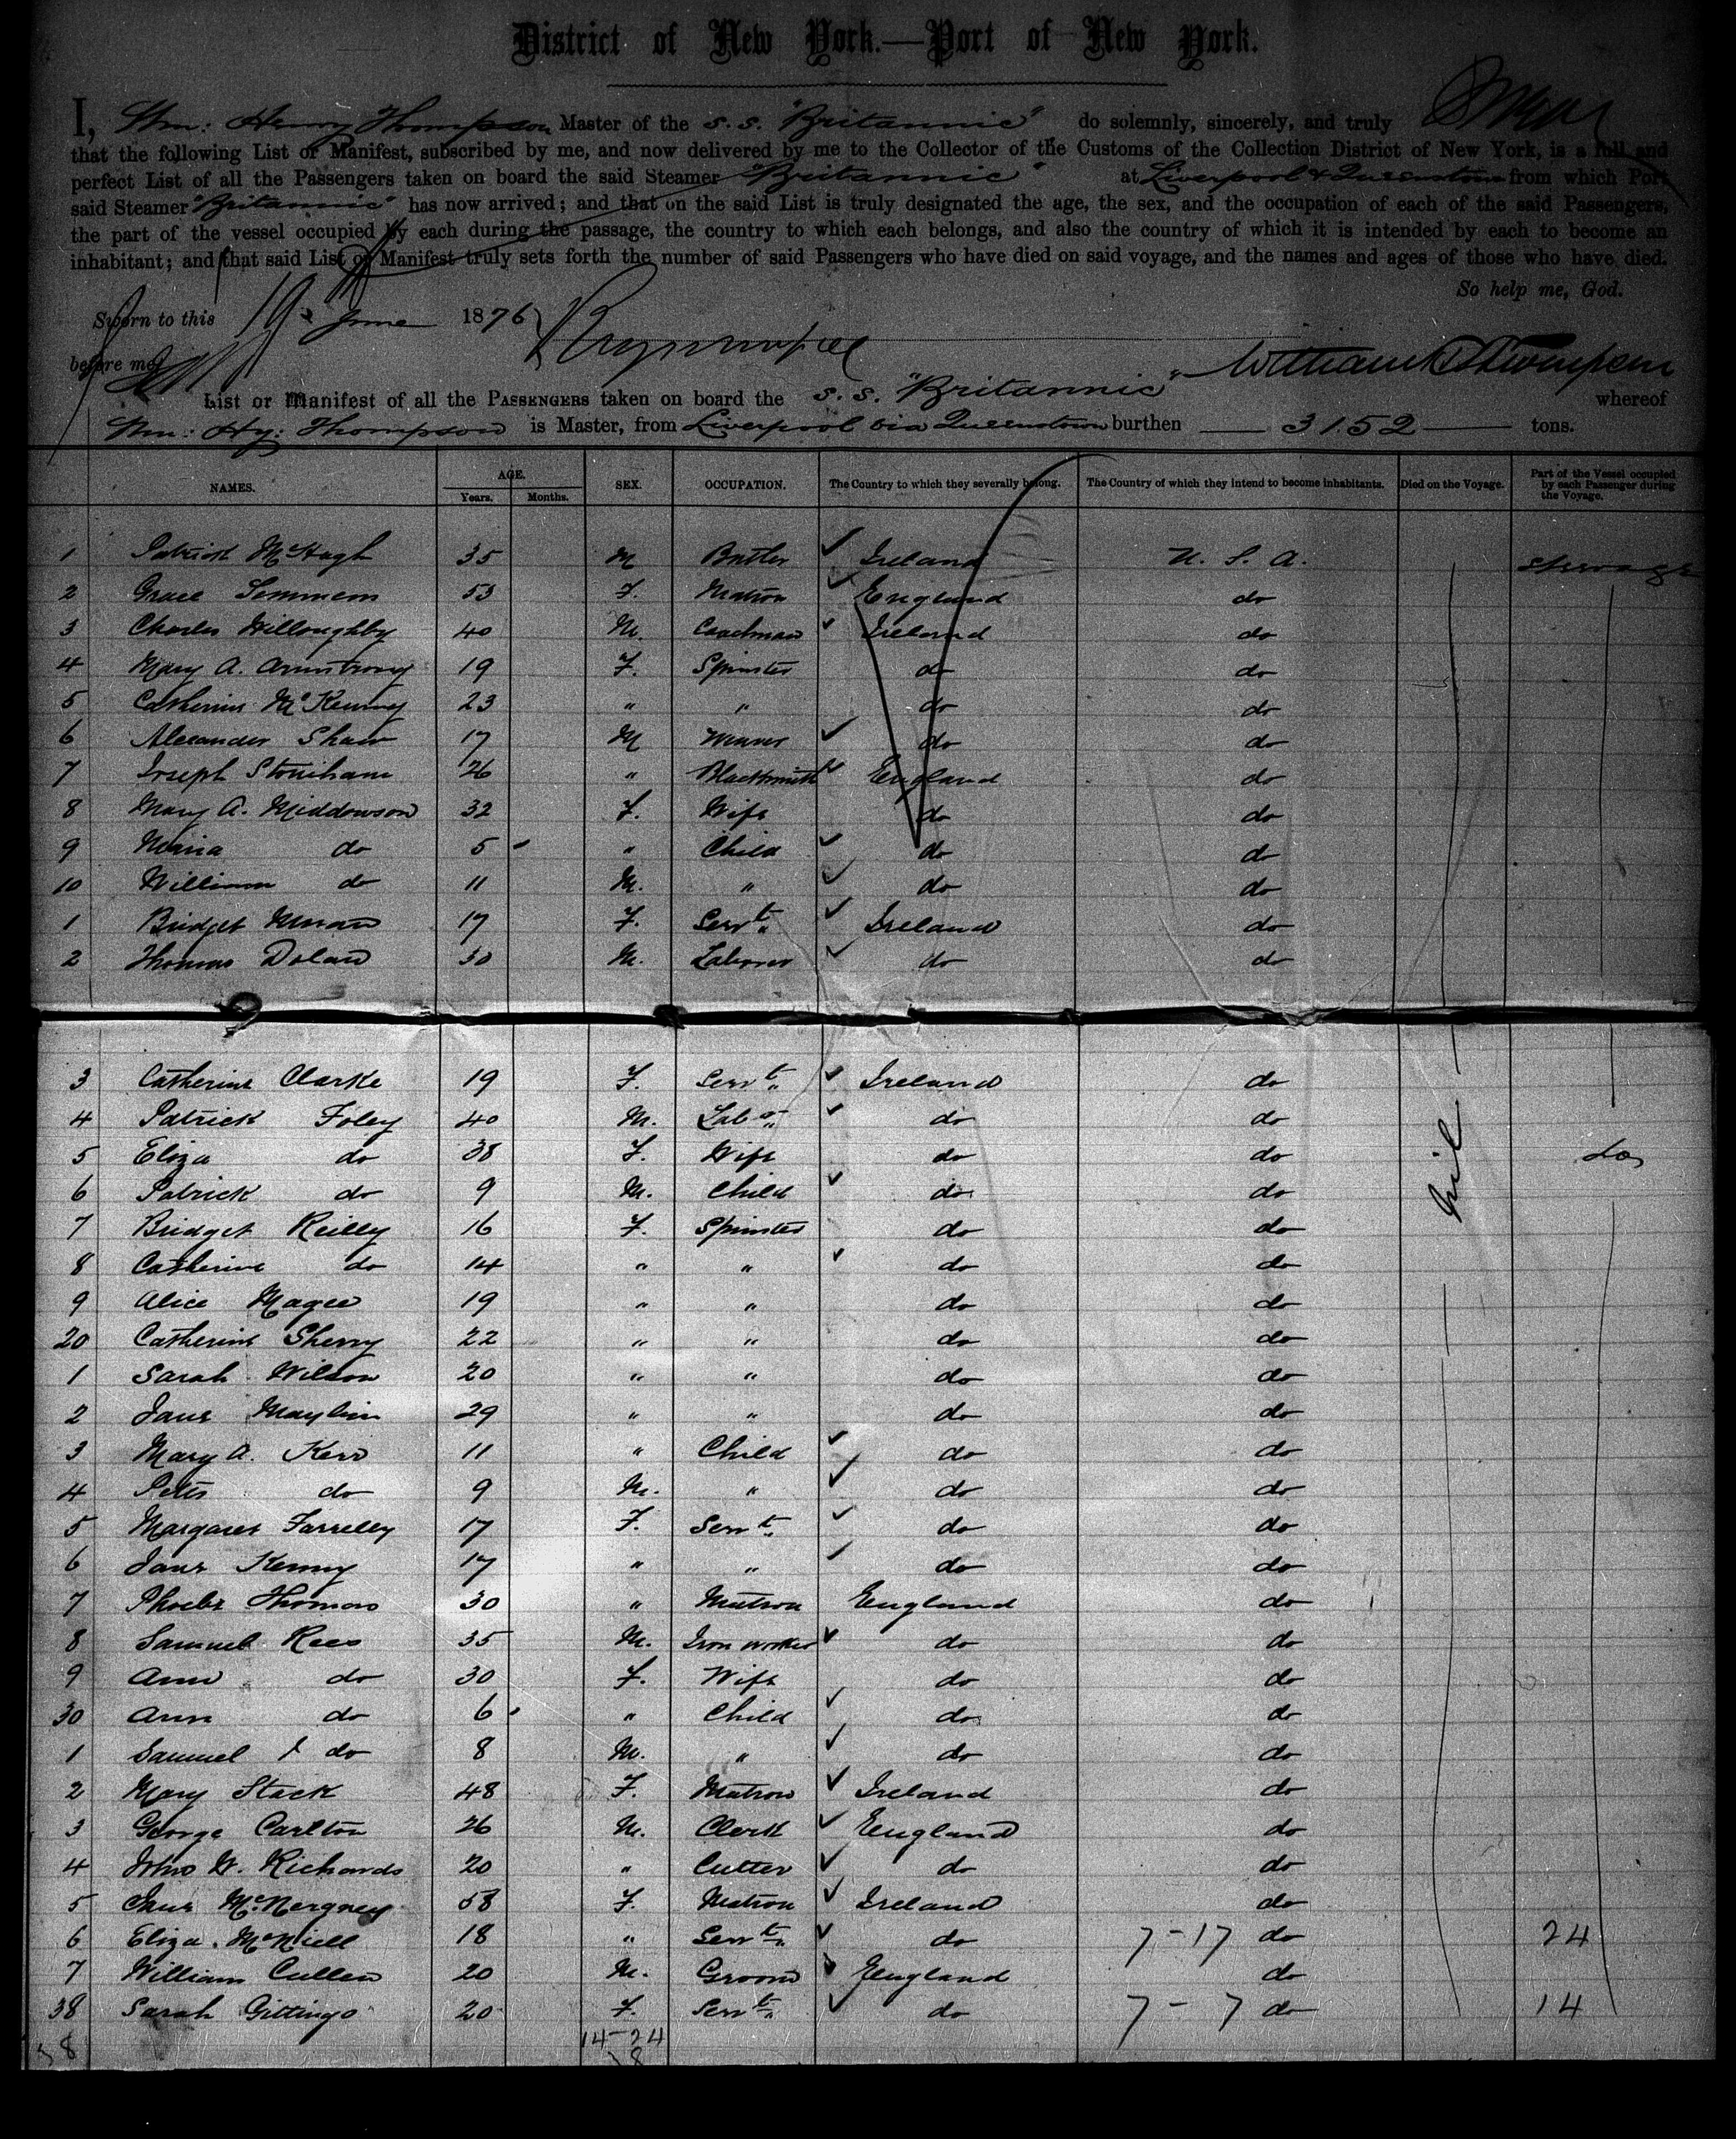 District of New York.—Port of New York.
I, Wm: Henry Thompson Master of the s.s. "Britannic" do solemnly, sincerely, and truly Swear
that the following List or Manifest, subscribed by me, and now delivered by me to the Collector of the Customs of the Collection District of New York, is a full and
perfect List of all the Passengers taken on board the said Steamer "Britannic" at Liverpool & Queenstown from which Port
said Steamer "Britannic" has now arrived; and that on the said List is truly designated the age, the sex, and the occupation of each of the said Passengers,
the part of the vessel occupied by each during the passage, the country to which each belongs, and also the country of which it is intended by each to become an
inhabitant; and that said List or Manifest truly sets forth the number of said Passengers who have died on said voyage, and the names and ages of those who have died.
So help me, God.
Sworn to this 19 June 1876
before me
William H Thompson
List or Manifest of all the PASSENGERS taken on board the s.s. "Britannic" whereof
Wm: Hy: Thompson is Master, from Liverpool via Queenstown burthen 3152 tons.
NAMES. AGE. Years. Months. SEX. OCCUPATION. The Country to which they severally belong. The Country of which they intend to become inhabitants. Died on the Voyage. Part of the Vessel occupied by each Passenger during the Voyage.
1 Patrick McHugh 35 M Butler Ireland U. S. A. Steerage
2 Grace Semmens 53 F. Matron England do
3 Charles Willoughby 40 M. Coachman Ireland do
4 Mary A. Armstrong 19 F. Spinster do do
5 Catherine McKenny 23 " " do do
6 Alexander Shaw 17 M Weaver do do
7 Joseph Stoniham 26 " Blacksmith England do
8 Mary A. Middowson 32 F. Wife do do
9 Maria do 5 " Child do do
10 William do 11 M. " do do
1 Bridget Moran 17 F. Servt. Ireland do
2 Thomas Dolan 30 M. Laborer do do
3 Catherine Clarke 19 F. Servt. Ireland do
4 Patrick Foley 40 M. Labor. do do
5 Eliza do 38 F. Wife do do do
6 Patrick do 9 M. Child do do nil
7 Bridget Reilly 16 F. Spinster do do
8 Catherine do 14 " " do do
9 Alice Magee 19 " " do do
20 Catherine Sherry 22 " " do do
1 Sarah Wilson 20 " " do do
2 Jane Maylin 29 " " do do
3 Mary A. Kerr 11 " Child do do
4 Peter do 9 M. " do do
5 Margaret Farrelly 17 F. Servt. do do
6 Jane Kenny 17 " " do do
7 Phoebe Thomas 30 " Matron England do
8 Samuel Rees 35 M. Iron worker do do
9 Ann do 30 F. Wife do do
30 Ann do 6 " Child do do
1 Samuel J do 8 M. " do do
2 Mary Stack 48 F. Matron Ireland do
3 George Carlton 26 M. Clerk England do
4 John W. Richards 20 " Cutter do do
5 Jane McNergney 58 F. Matron Ireland do
6 Eliza McNiell 18 " Servt. do 7-17 do 24
7 William Cullen 20 M. Groom England do
38 Sarah Gittings 20 F. Servt. do 7-7 do 14
38 14-24
38